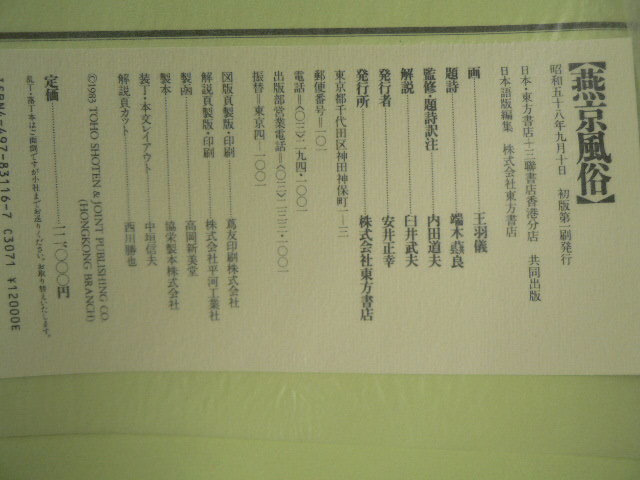 【燕京風俗】
昭和五十八年九月十日　初版第一刷発行
日本・東方書店＋三聯書店香港分店　共同出版
日本語版編集　株式会社東方書店
画 王羽儀
題詩 端木蕻良
監修・題詩訳注 内田道夫
解説 臼井武夫
発行者 安井正幸
発行所 株式会社東方書店
東京都千代田区神田神保町一ー三
郵便番号＝一〇一
電話＝(〇三)二九四・一〇〇一
出版部営業電話＝(〇三)二三三・一〇〇一
振替＝東京四ー一〇〇一
図版頁製版・印刷 蔦友印刷株式会社
解説頁製版・印刷 株式会社平河工業社
製函 高岡新美堂
製本 協栄製本株式会社
装丁・本文レイアウト 中垣信夫
解説頁カット 西川勝也
©1983 TOHO SHOTEN & JOINT PUBLISHING CO. (HONGKONG BRANCH)
定価 一二,〇〇〇円
乱丁・落丁本はご面倒ですが小社までお送りください。お取り替えいたします。
497-83116-7 C3071 ¥12000E